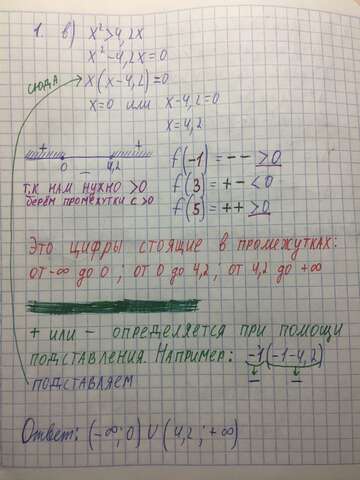 1. в) x²>4,2x
x²-4,2x=0
СЮДА x(x-4,2)=0
x=0 или x-4,2=0
x=4,2
+ - +
0 4,2
Т.К НАМ НУЖНО >0
берём ПРОМЕЖУТКИ С >0
f(-1)=-- >0
f(3)=+-<0
f(5)=++>0
Это цифры стоящие в промежутках:
от -∞ до 0 ; от 0 до 4,2 ; от 4,2 до +∞
+ или - определяется при помощи
подставления. Например: -1(-1-4,2)
подставляем - -
Ответ: (-∞;0)∪(4,2;+∞)